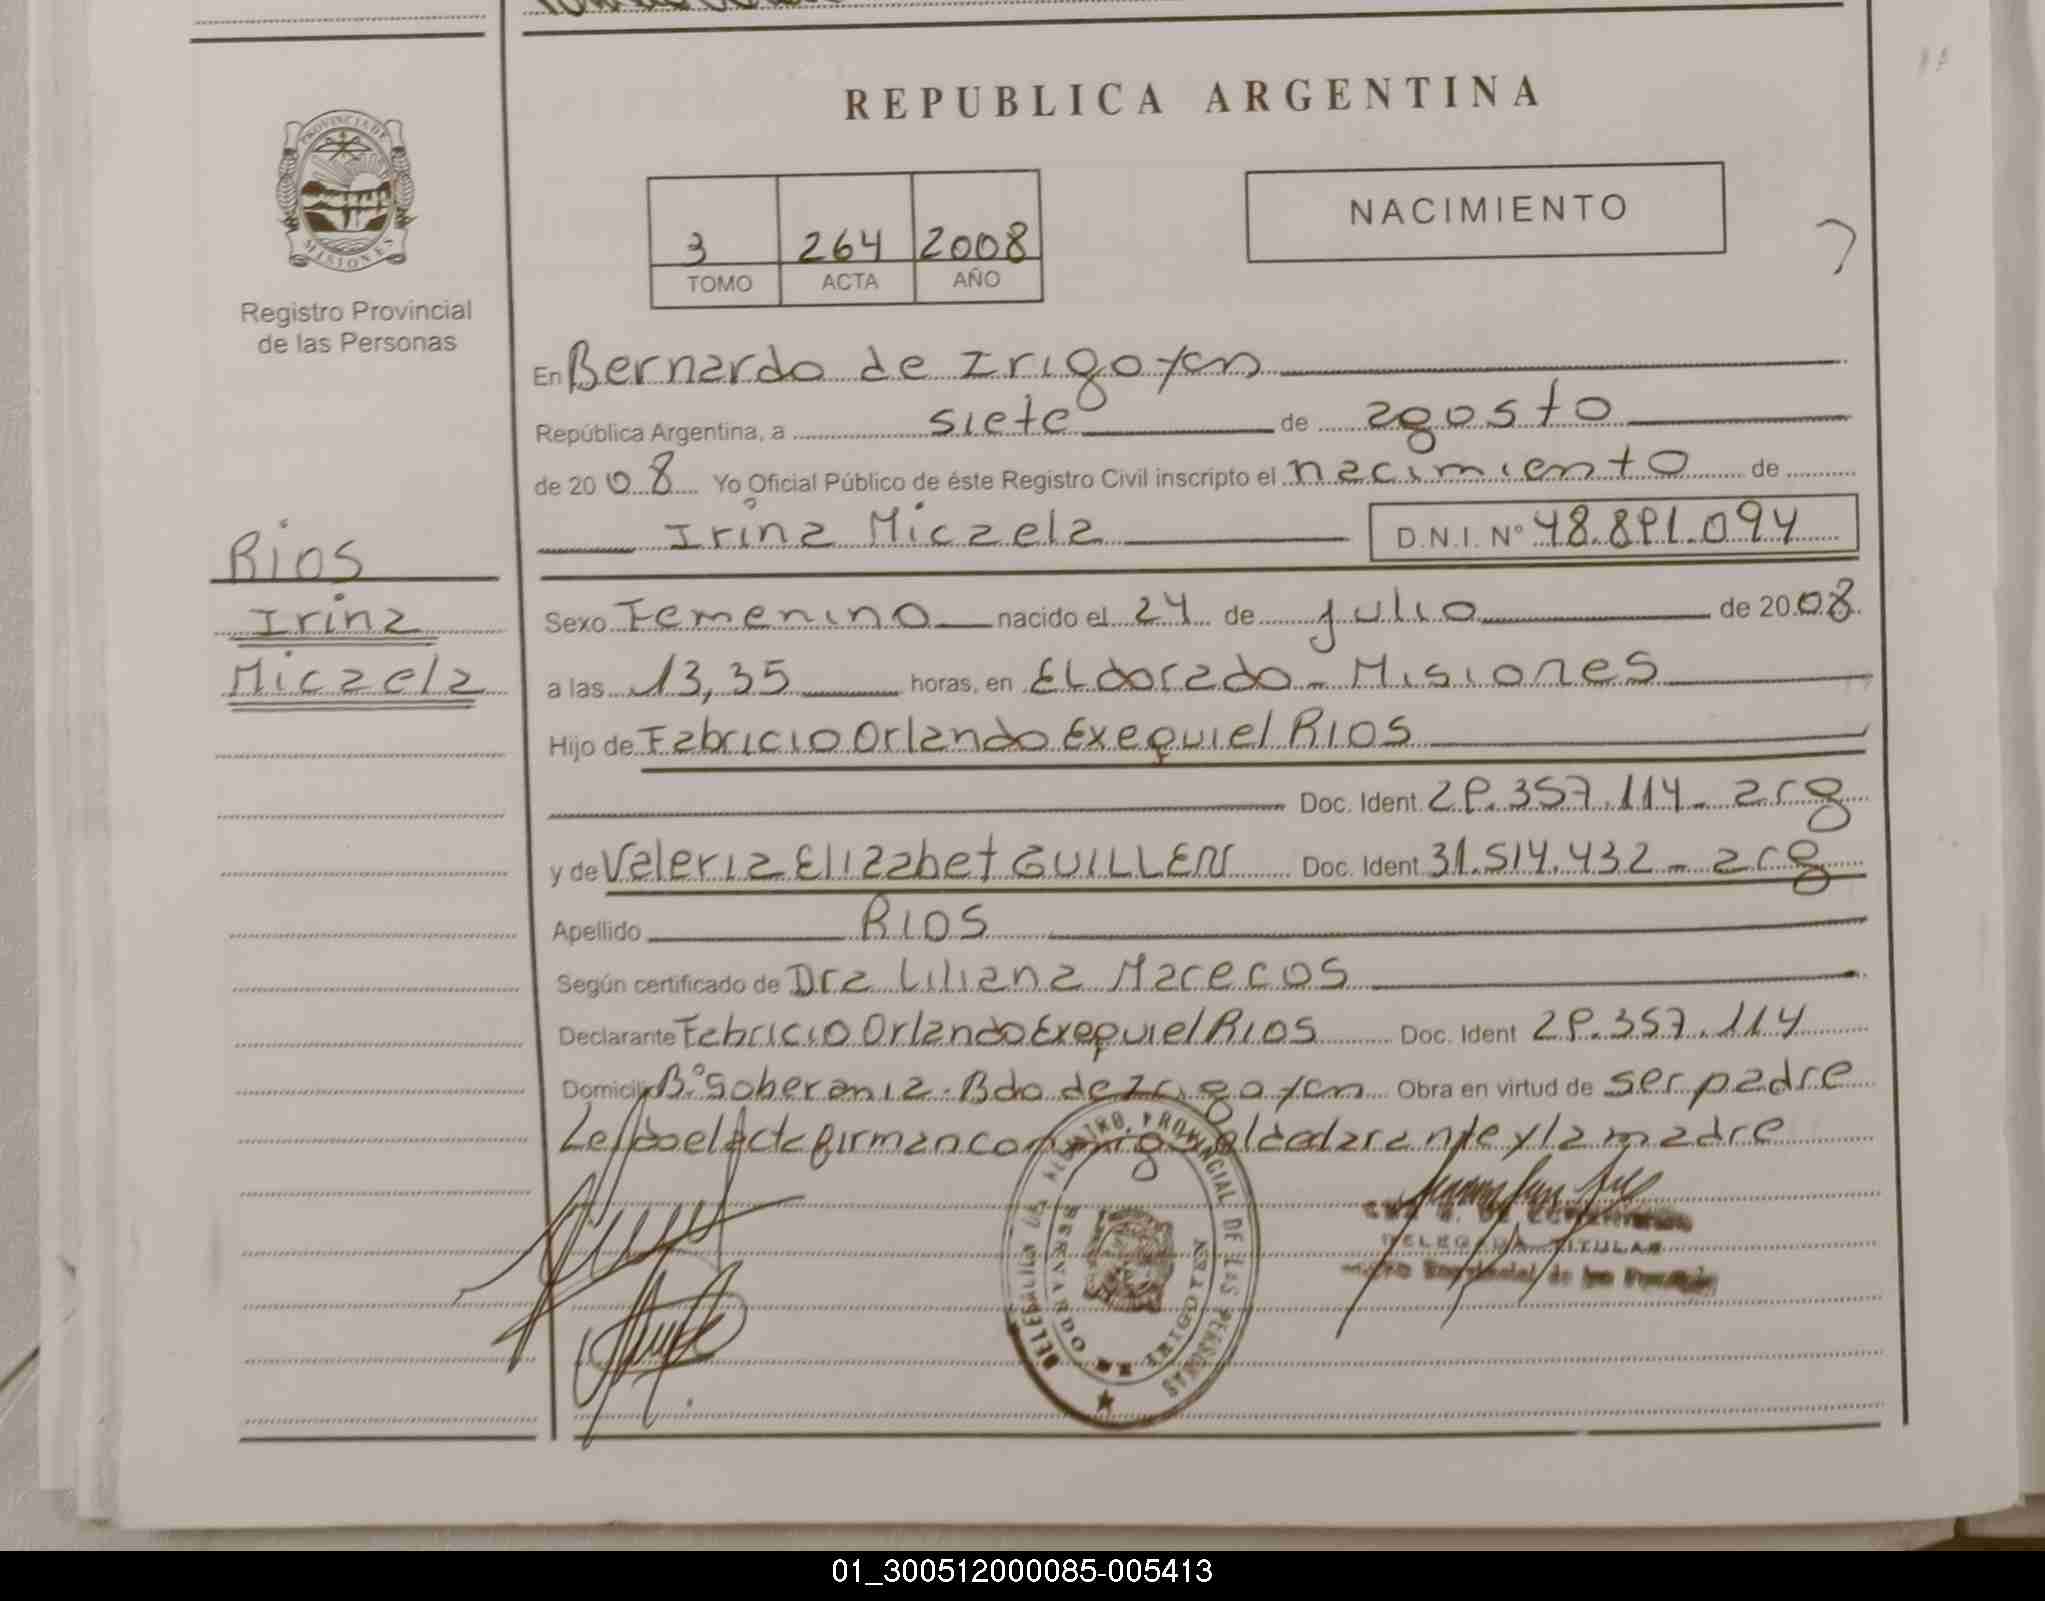 REPUBLICA ARGENTINA
PROVINCIA DE
MISIONES
Registro Provincial
de las Personas
3 264 2008
TOMO ACTA AÑO
NACIMIENTO
En Bernardo de Irigoyen
República Argentina, a siete de agosto
de 2008 Yo Oficial Público de éste Registro Civil inscripto el nacimiento de
Irina Micaela D.N.I. Nº 48.891.094
RIOS
Irina
Micaela
Sexo Femenino nacido el 24 de julio de 2008
a las 13,35 horas, en Eldorado - Misiones
Hijo de Fabricio Orlando Exequiel RIOS
Doc. Ident. 29.357.114 - arg
y de Valeria Elizabet GUILLEN Doc. Ident. 31.514.432 - arg
Apellido RIOS
Según certificado de Dra Liliana Marecos
Declarante Fabricio Orlando Exequiel RIOS Doc. Ident 29.357.114
Domicilio Bº Soberania - Bdo de Irigoyen Obra en virtud de ser padre
Leida el acta firman conmigo el declarante y la madre
REGISTRO PROVINCIAL DE LAS PERSONAS
BERNARDO DE IRIGOYEN
DELEGADA TITULAR
01_300512000085-005413